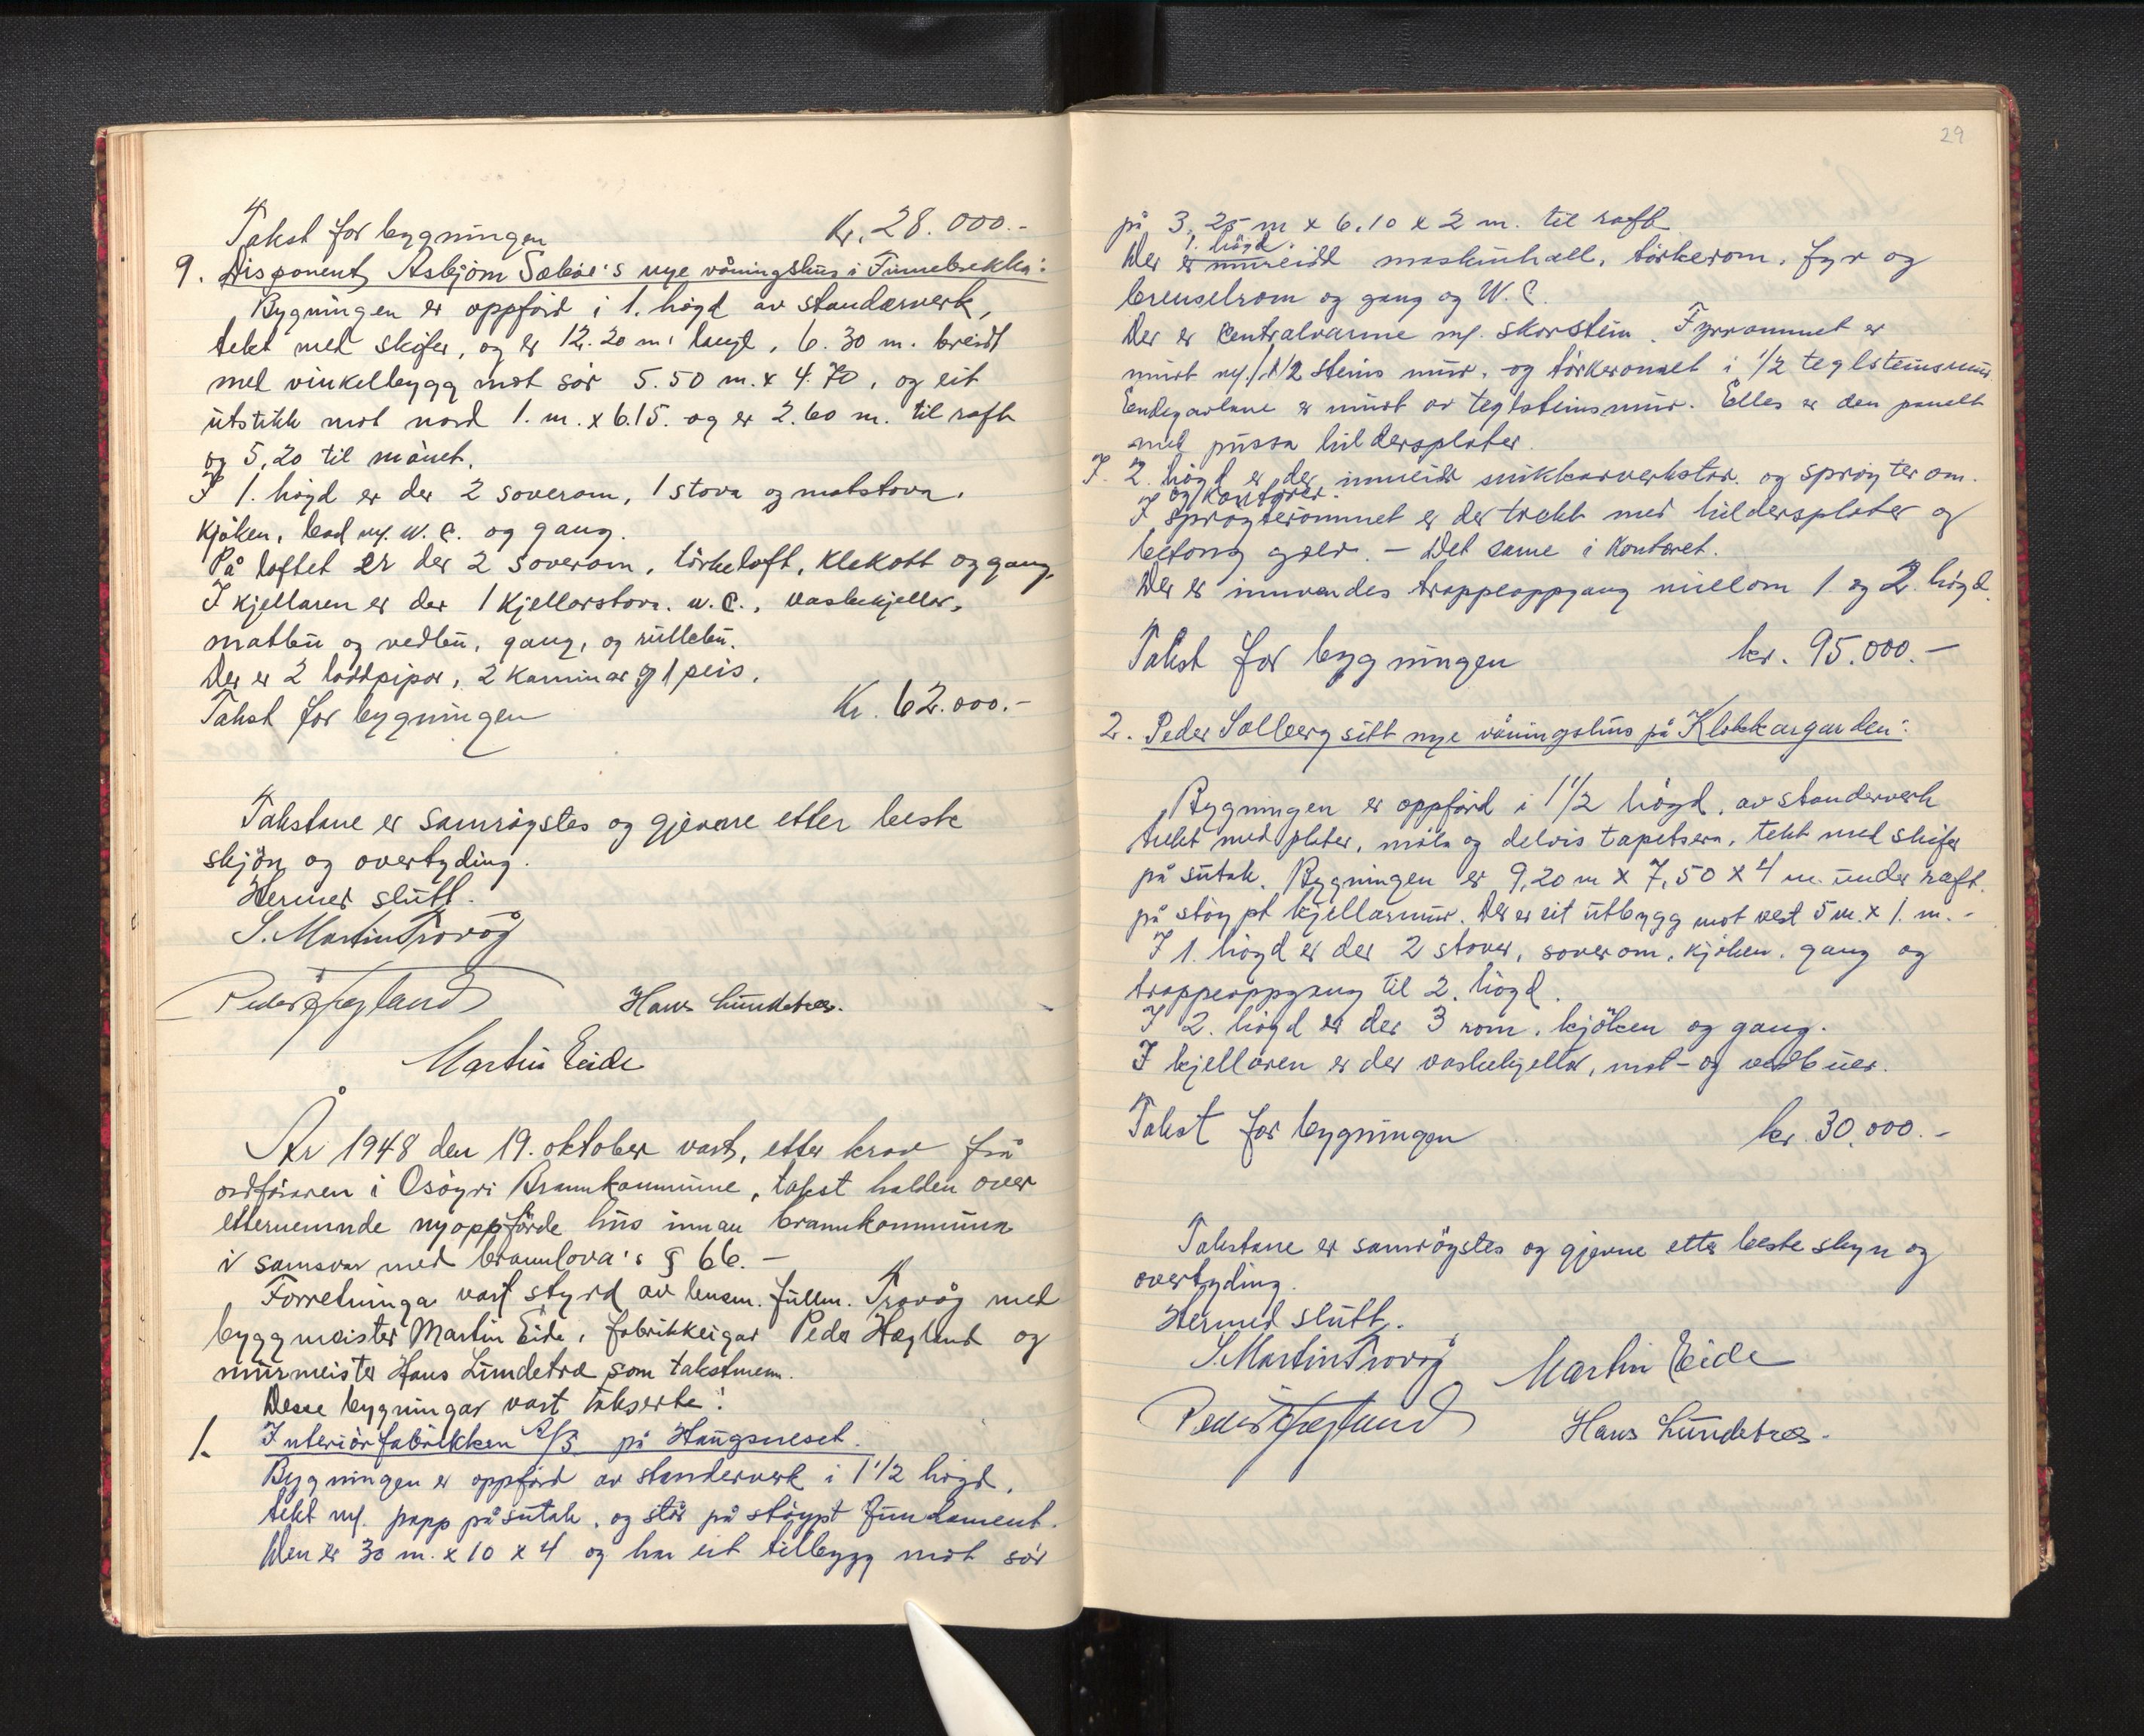 Takst for bygningen Kr. 28.000.-
9. Disponent Asbjörn Sæbøe's nye våningshus i Finnebrekka:
Bygningen er oppförd i 1. högd av standarverk,
tekt med skifer, og er 12.20 m. langt, 6.30 m. breidt
med vinkelbygg mot sör 5.50 m. x 4.70, og eit
utstikk mot nord 1. m. x 6.15. og er 2.60 m. til raft
og 5,20 til mönet.
I 1. högd er der 2 soverom, 1 stova og matstova,
kjöken, bad m/. W.C. og gang.
På loftet er der 2 soverom, törkeloft, klekott og gang,
I kjellaren er der 1 kjellarstova. W.C., vaskekjellar,
matbu og vedbu, gang, og rullebu.
Der er 2 loddpipor, 2 kaminar og 1 peis.
Takst for bygningen Kr. 62.000.-
Takstane er samröystes og gjevne etter beste
skjön og overtyding.
Hermed slutt.
S. Martin Trovåg
Peder Hegland Hans Lundetræ.
Martin Eide
År 1948 den 19. oktober vart, etter krav frå
ordföraren i Osöyri Brannkommune, takst halden over
etternemnde nyoppförde hus innan brannkommuna
i samsvar med brannlova's § 66. -
Forretninga vart styrd av lensm. fullm. Trovåg med
byggmeister Martin Eide, fabrikkeigar Peder Hegland og
murmeister Hans Lundetræ som takstmenn.
Desse bygningar vart takserte:
1. Interiörfabrikken A/S på Haugsneset.
Bygningen er oppförd av standerverk i 1 1/2 högd,
tekt m/. papp på sutak, og står på stöypt fundament.
Den er 30 m. x 10 x 4 og har eit tilbygg mot sör
29
på 3,25 m x 6,10 x 2 m. til raft
1. högd.
Der er innreidd maskinhall, törkerom, fyr og
brenselrom og gang og W.C.
Der er sentralvarme m/. skorstein. Fyrrommet er
murt m/. 1 1/2 steins mur, og törkerommet i 1/2 teglsteinsmur
Endegavlane er murt av teglsteinsmur. Elles er den panelt
med pussa huldersplater.
I. 2. högd er der innreidd snikkarverkstar. og spröyterom.
og kontorer.
I spröyterommet er der trekt med huldersplater og
betong golv. - Det same i kontoret.
Der er innvendes trappeoppgang millom 1. og 2. högd.
Takst for bygningen kr. 95.000.-
2. Peder Solberg sitt nye våningshus på Klokkargarden:
Bygningen er oppförd i 1 1/2 högd, av standerverk
trekt med plater, måla og delvis tapetsera, tekt med skifer
på sutak. Bygningen er 9,20 m x 7,50 x 4 m. under raft.
på stöypt kjellarmur. Der er eit utbygg mot vest 5 m. x 1. m. -
I 1. högd er der 2 stover, soverom, kjöken, gang og
trappeoppgang til 2. högd.
I 2. högd er der 3 rom, kjöken og gang.
I kjellaren er der vaskekjellar, mat- og vedbuer.
Takst for bygningen kr. 30.000.-
Takstane er samröystes og gjevne etter beste skyn og
overtyding.
Hermed slutt.
S. Martin Trovåg Martin Eide
Peder Hegland Hans Lundetræ.